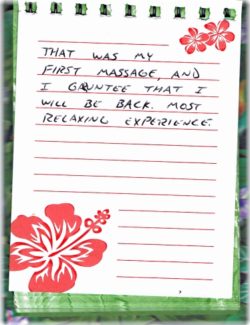 THAT WAS MY
FIRST MASSAGE, AND
I GRUNTEE THAT I
WILL BE BACK. MOST
RELAXING EXPERIENCE.